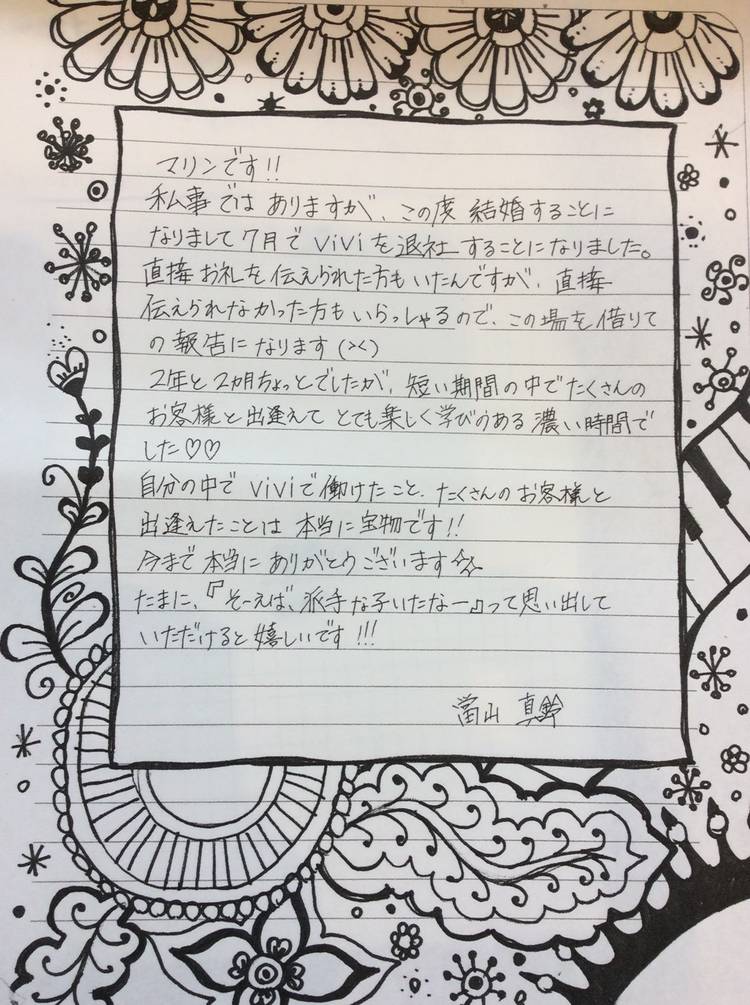 マリンです!!
私事ではありますが、この度 結婚することに
なりまして7月で ViViを退社することになりました。
直接お礼を伝えられた方もいたんですが、直接
伝えられなかった方もいらっしゃるので、この場を借りて
の報告になります(><)
2年と2ヵ月ちょっとでしたが、短い期間の中でたくさんの
お客様と出逢えて とても楽しく学びのある濃い時間で
した♡♡
自分の中で ViViで働けたこと、たくさんのお客様と
出逢えたことは 本当に宝物です!!
今まで本当にありがとうございます☆
たまに、『そーえば、派手な子いたなー』って思い出して
いただけると嬉しいです!!!
當山 真鈴